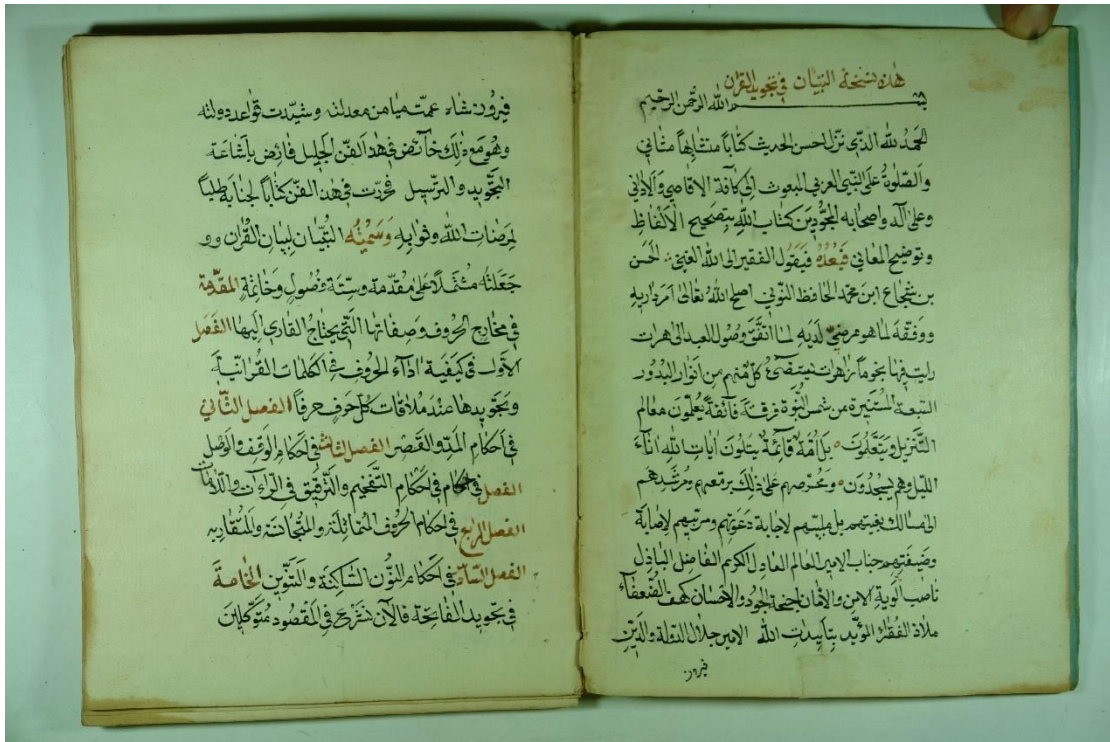 هذه نسخة التبيان في تجويد القران
بسم الله الرحمن الرحيم
الحمد لله الذي نزل احسن الحديث كتاباً متشابهاً مثاني
والصلوة على النبي العربي المبعوث الى كافة الاقاصي والاداني
وعلى آله واصحابه المجودين كتاب الله بتصحيح الالفاظ
وتوضيح المعاني فبعده فيقول الفقير الى الله الغني الحسن
بن شجاع ابن محمد الحافظ التوني اصلح الله تعالى امر داريه
ووفقه لما هو مرضي لديه لما اتفق وصول للعبد الى هرات
رايت فيها نجوماً زاهرات يستضئ كل منهم من انوار البدور
التبعة المستنيرة من شمس النبوة فرقة فائقة يعلمون معالم
التنزيل ويتعلمون بل أمة قائمة يتلون ايات الله اناء
الليل وهم يسجدون ويحرصهم على ذلك ومرشدهم
الى مسالك بل لاجابة دعوتهم ومربيهم لاصابة
جناب الامير العالم العادل الكريم الفاضل الباذل
ناصب الوية الامن والامان الجود والاحسان كهف الضعفاء
ملاذ الفقراء المؤيد بتأييدات الله الامير جلال الدولة والدين
فيروز
فيروز شاه عمت ميامن معدلته وشيدت قواعد دولته
وهو مع ذلك خائض في هذا الفن الجليل فائض باشاعة
التجويد والترتيل فحررت في هذا الفن كتاباً لجنابه طلباً
لمرضات الله وثوابه وسميته التبيان لبيان القران و و
جعلته مشتملاً على مقدمة وستة فصول وخاتمة المقدمة
في مخارج الحروف وصفاتها التي يحتاج القاري اليها الفصل
الاول في كيفية اداء الحروف في الكلمات القرانية
وتجويدها عند ملاقات كل حرف حرفاً الفصل الثاني
في احكام المد والقصر الفصل الثالث في احكام الوقف والوصل
الفصل في احكام التفخيم والترقيق في الراءات واللامات
الفصل الرابع في احكام الحروف المتماثلة والمتجانسة والمتقاربه
الفصل السادس في احكام النون الساكنة والتنوين الخاتمة
في تجويد الفاتحة فالآن نشرع في المقصود متوكلين